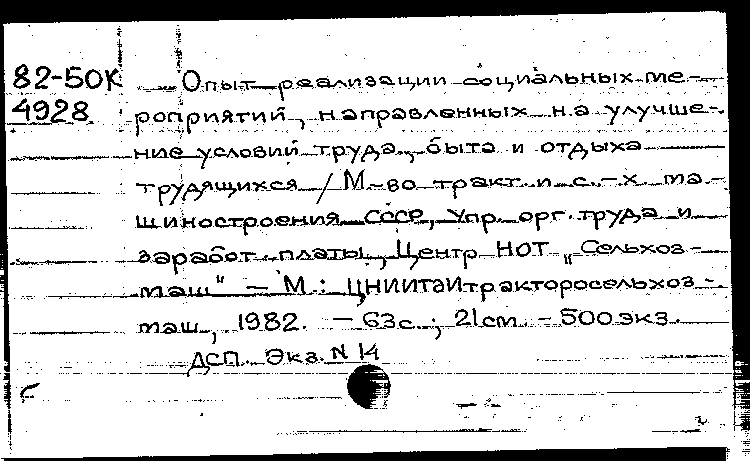 82-50К Опыт реализации социальных ме-
4928 роприятий, направленных на улучше-
ние условий труда, быта и отдыха
трудящихся / М-во тракт. и с.-х. ма-
шиностроения СССР, Упр. орг. труда и
заработ. платы, Центр НОТ „Сельхоз-
маш" — М.: ЦНИИТЭИтракторосельхоз-
маш, 1982. — 63с.; 21см. - 500 экз.
ДСП. Экз. N 14